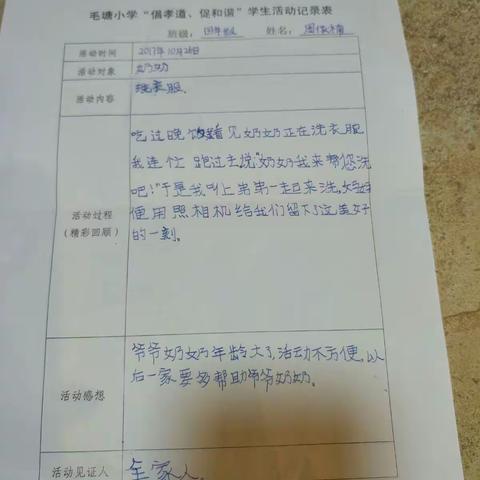 毛塘小学“倡孝道、促和谐”学生活动记录表
班级：四年级 姓名：周
活动时间 2017年10月28日
活动对象 奶奶
活动内容 洗衣服
活动过程
（精彩回顾）
吃过晚饭看见奶奶正在洗衣服
我连忙跑过去说“奶奶我来帮您洗
吧！”于是我叫上弟弟一起来洗,妈妈
便用照相机给我们留下了这美好
的一刻。
活动感想
爷爷奶奶年龄大了,活动不方便,以
后一家要多帮助爷爷奶奶。
活动见证人 全家人